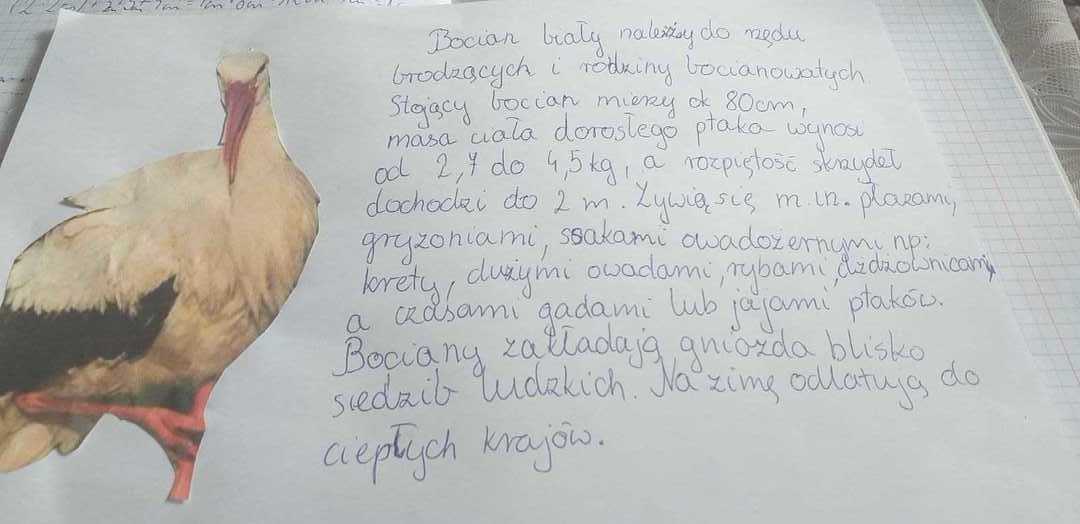 Bocian biały należy do rzędu
brodzących i rodziny bocianowatych.
Stojący bocian mierzy ok 80cm,
masa ciała dorosłego ptaka wynosi
od 2,7 do 4,5 kg, a rozpiętość skrzydeł
dochodzi do 2 m. Żywią się m.in. płazami,
gryzoniami, ssakami owadożernymi np:
krety, dużymi owadami, rybami, dżdżownicami,
a czasami gadami lub jajami ptaków.
Bociany zakładają gniazda blisko
siedzib ludzkich. Na zimę odlatują do
ciepłych krajów.